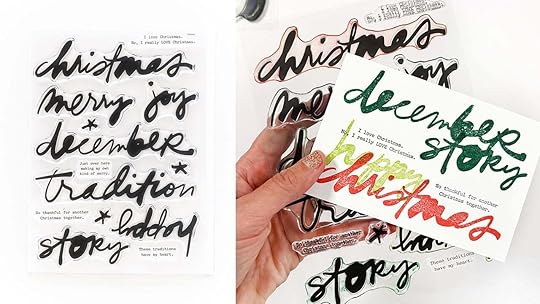 I love Christmas.
No, I really LOVE Christmas.
christmas
merry joy
december
Just over here
making my own
kind of merry.
tradition
So thankful for another
Christmas together.
happy
story
These traditions
have my heart.
christmas
december
I love Christmas.
No, I really LOVE Christmas.
story
happy
So thankful for another
Christmas together.
christmas
So thankful for another
Christmas together.
story
These traditions
have my heart.